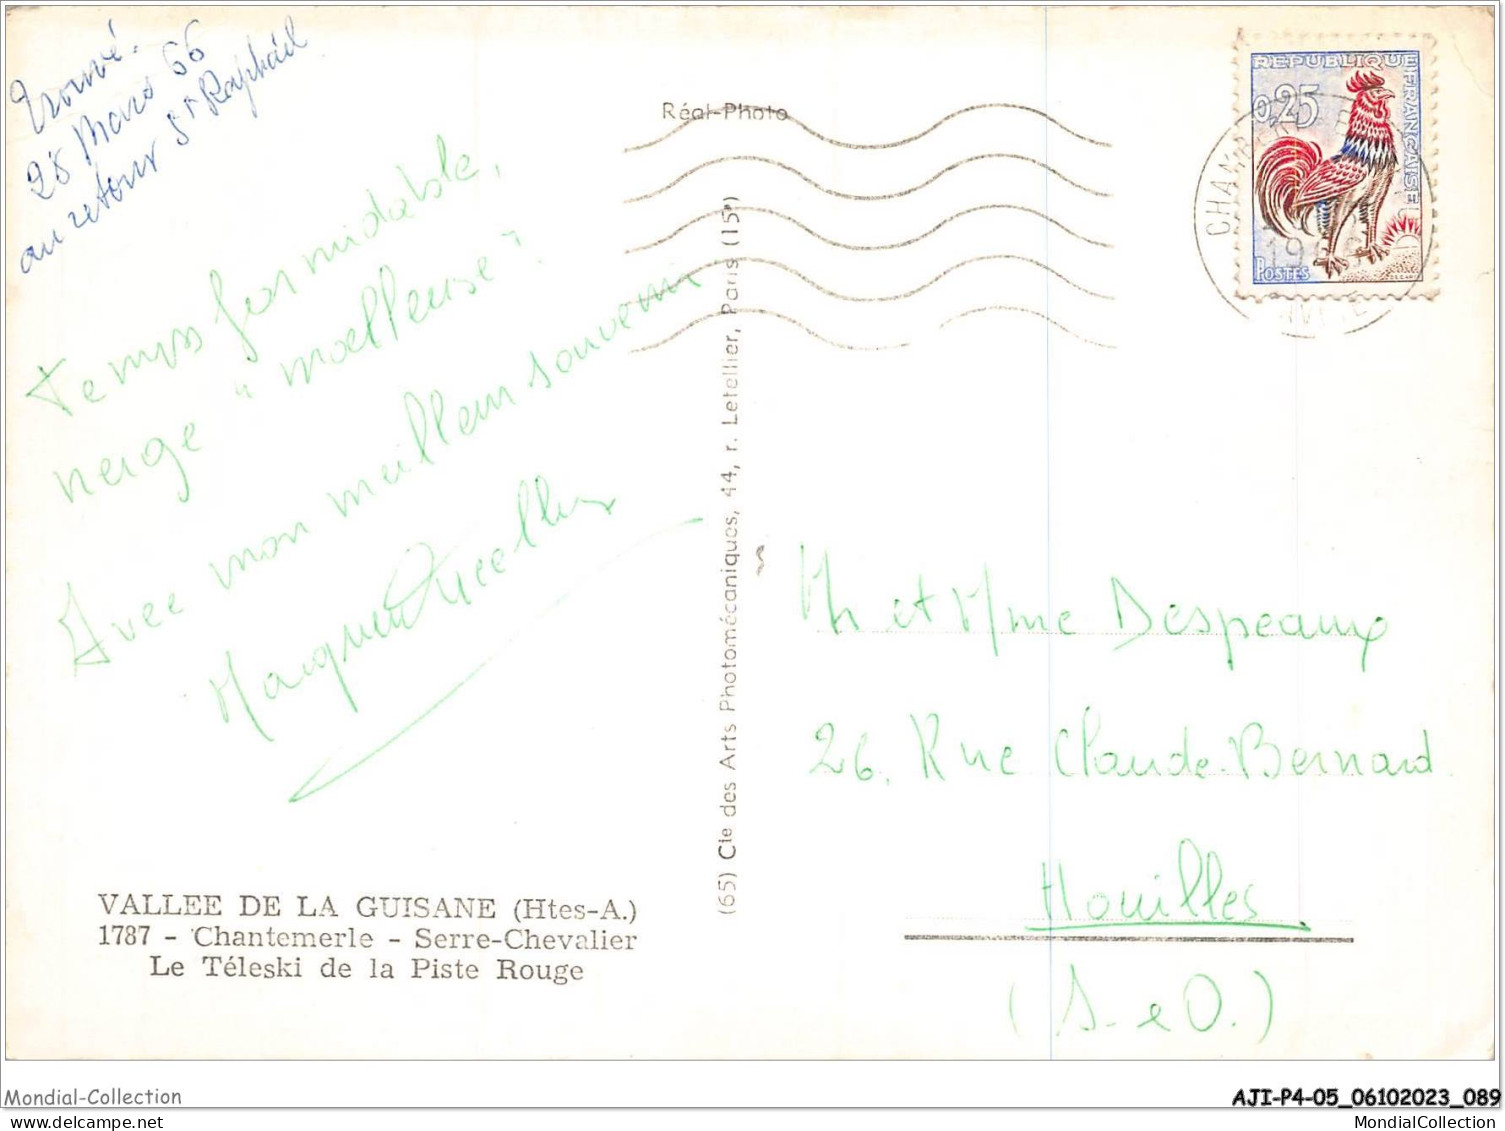 Trouvé.
28 Mars 66
au retour St Raphaël
Temps formidable,
neige "moelleuse".
Avec mon meilleur souvenir
VALLEE DE LA GUISANE (Htes-A.)
1787 - Chantemerle - Serre-Chevalier
Le Téleski de la Piste Rouge
Réal-Photo
(65) Cie des Arts Photomécaniques, 44, r. Letellier, Paris (15e)
REPUBLIQUE FRANÇAISE
0,25
POSTES
M et Mme Despeaux
26, Rue Claude-Bernard
Houilles
(S.-e O.)
Mondial-Collection
AJI-P4-05_06102023_089
www.delcampe.net
MondialCollection